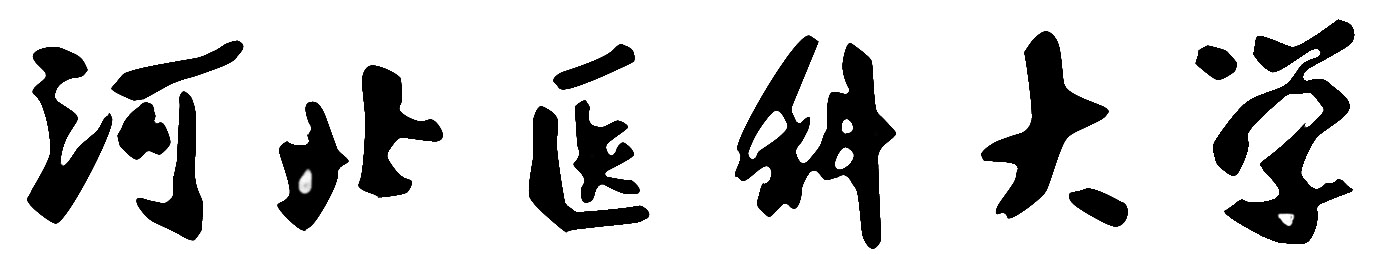 河北医科大学